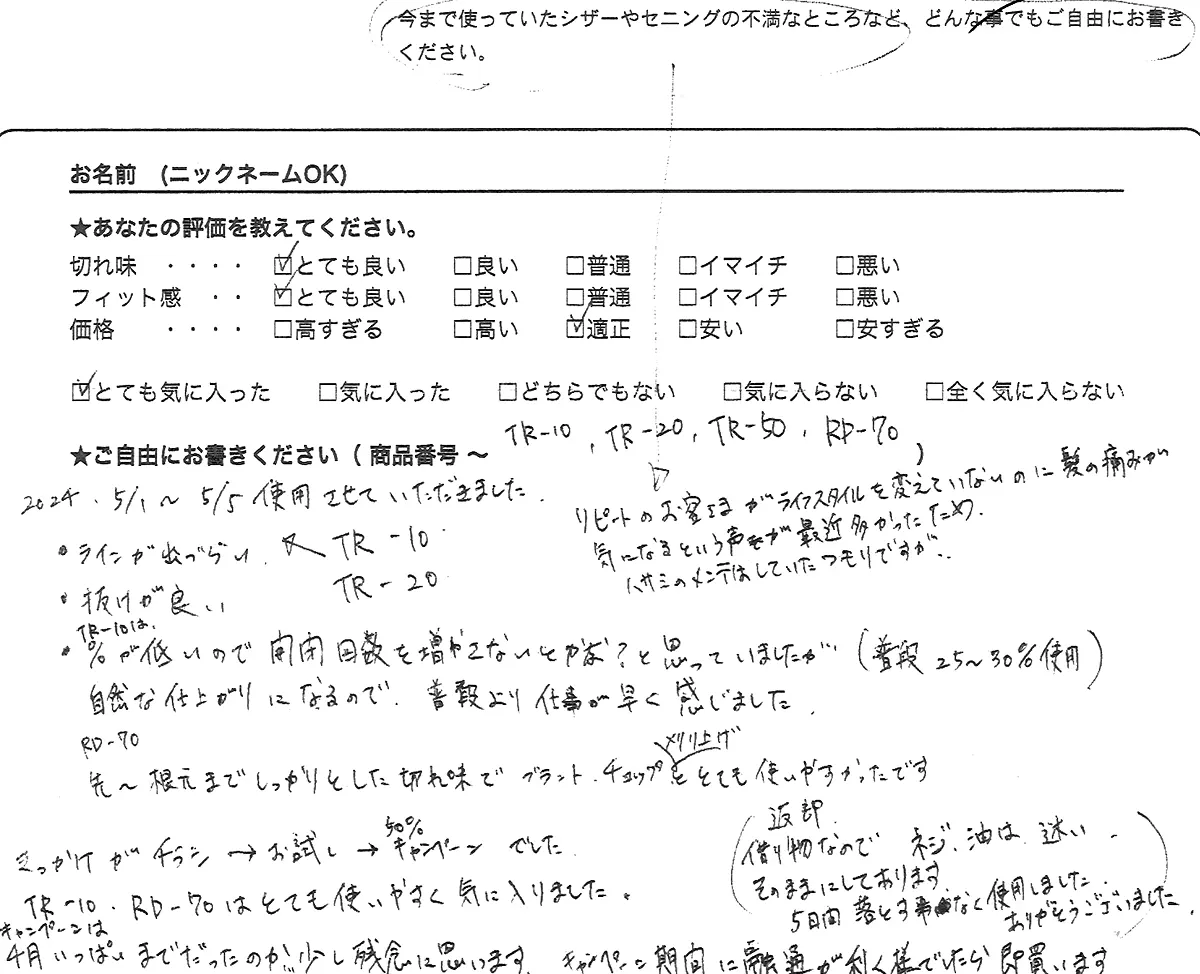 今まで使っていたシザーやセニングの不満なところなど、どんな事でもご自由にお書き
ください。
お名前 (ニックネームOK)
★あなたの評価を教えてください。
切れ味 ・・・・ ☑とても良い □良い □普通 □イマイチ □悪い
フィット感 ・・ ☑とても良い □良い □普通 □イマイチ □悪い
価格 ・・・・ □高すぎる □高い ☑適正 □安い □安すぎる
☑とても気に入った □気に入った □どちらでもない □気に入らない □全く気に入らない
★ご自由にお書きください（商品番号～ TR-10, TR-20, TR-50, RD-70 )
2024. 5/1 ～ 5/5 使用させていただきました.
リピートのお客さまがライフスタイルを変えていないのに髪の痛みが
気になるという声が最近多かったため.
ハサミのメンテはしていたつもりですが..
・ラインが出づらい. TR-10
・抜けが良い TR-20
TR-10は、
・%が低いので開閉回数を増やさないとかな?と思っていましたが (普段 25～30%使用)
自然な仕上がりになるので. 普段より仕事が早く感じました.
RD-70
先～根元までしっかりとした切れ味でブラント.チョップととても使いやすかったです
メリ上げ
きっかけがチラシ→お試し→50%キャンペーンでした.
TR-10. RD-70はとても使いやすく気に入りました.
キャンペーンは
4月いっぱいまでだったのが少し残念に思います. キャンペーン期間に融通が利く様でしたら即買います
返却.
(借り物なのでネジ.油は迷い
そのままにしております.
5日間落とす事なく使用しました.
ありがとうございました.)